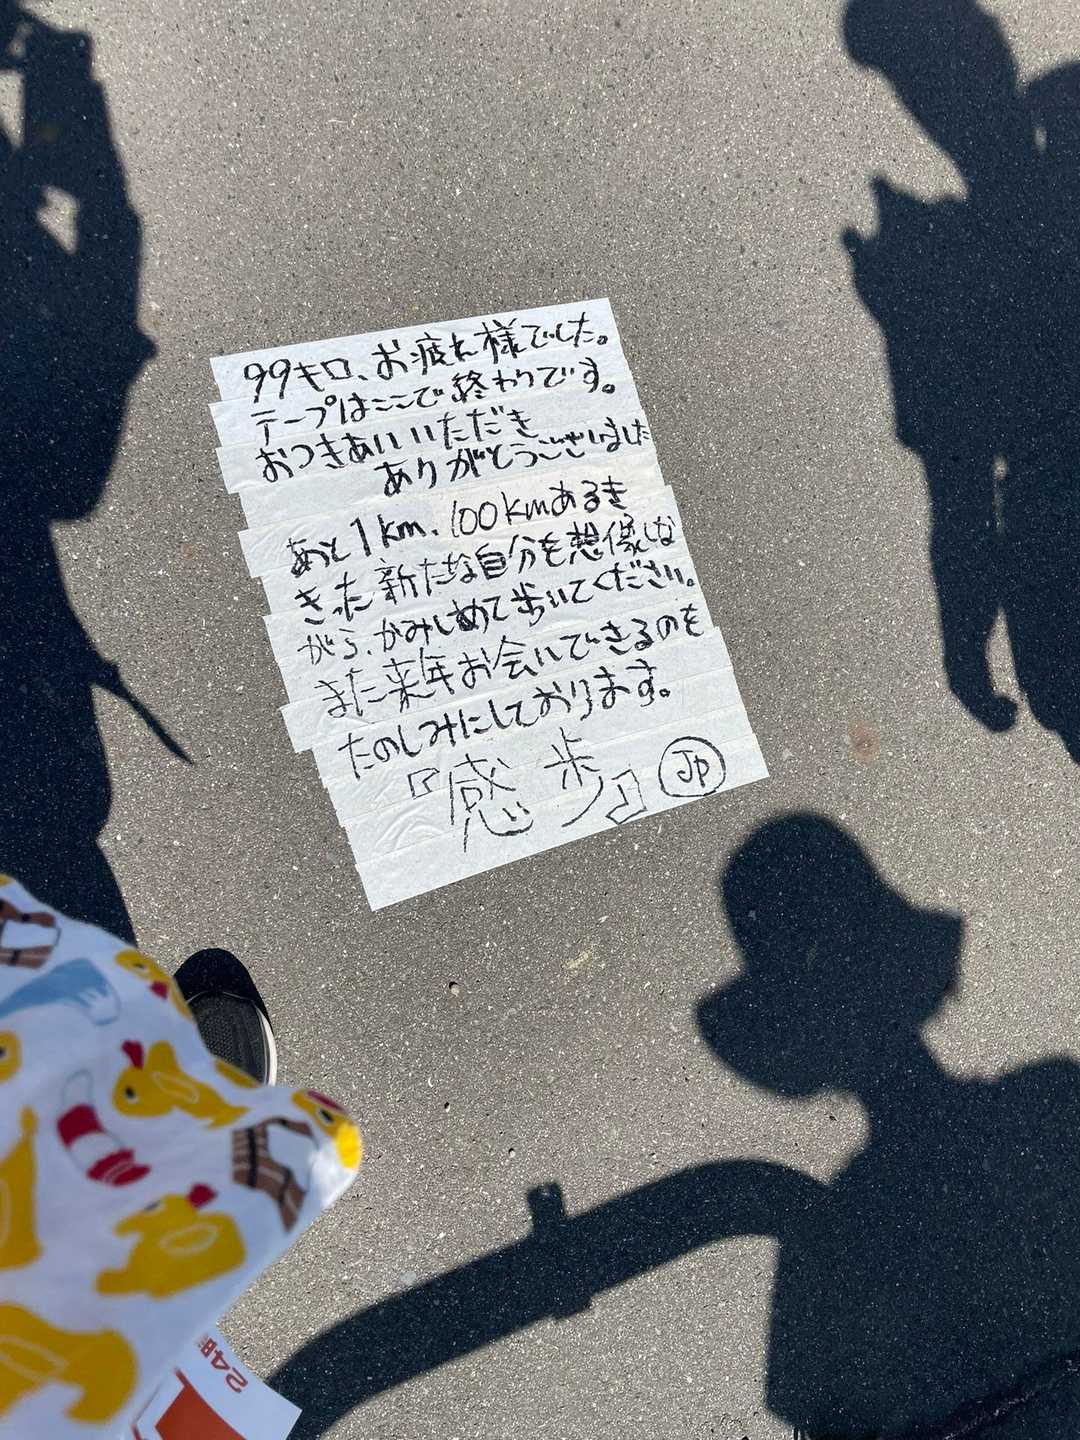 99キロ、お疲れ様でした。
テープはここで終わりです。
おつきあいいただき
ありがとうございました
あと1km、100kmあるき
きった新たな自分を想像しな
がら、かみしめて歩いてください。
また来年お会いできるのを
たのしみにしております。
『感歩』 JP
24時